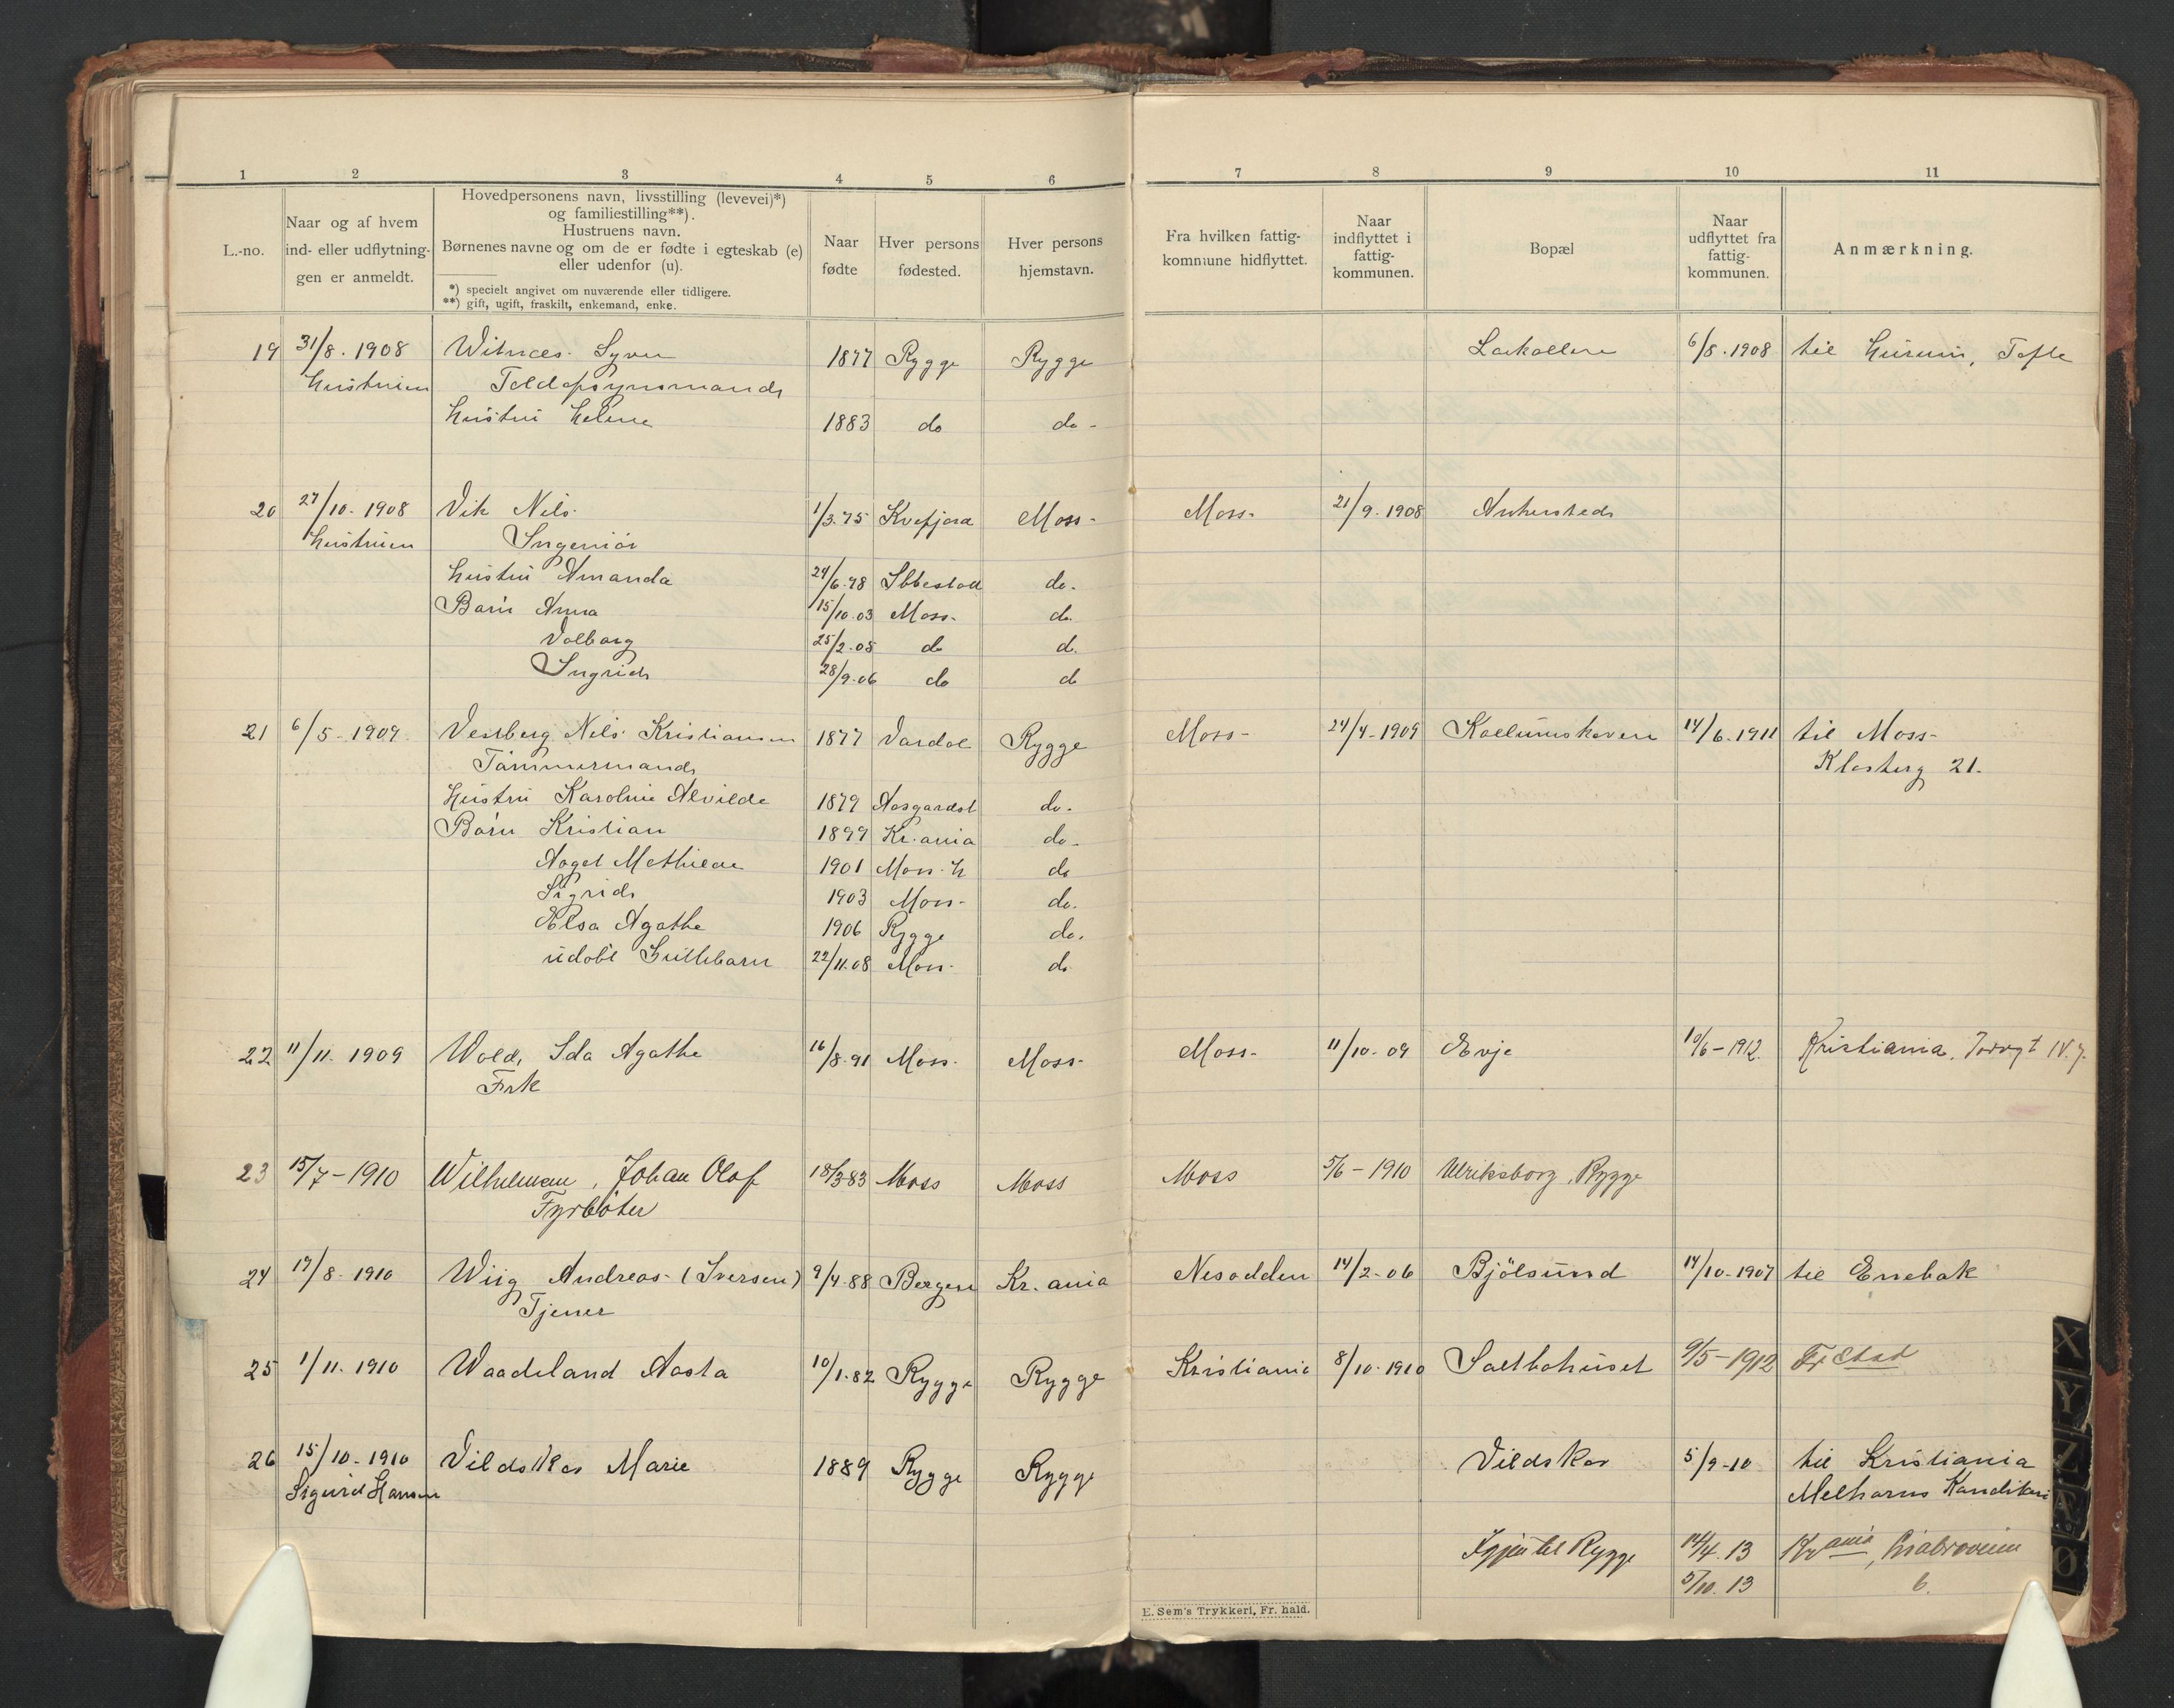 1 2 3 4 5 6 7 8 9 10 11
L.-no.
Naar og af hvem
ind- eller udflytnin-
gen er anmeldt.
Hovedpersonens navn, livsstilling (levevei)*)
og familiestilling**).
Hustruens navn.
Børnenes navne og om de er fødte i egteskab (e)
eller udenfor (u).
*) specielt angivet om nuværende eller tidligere.
**) gift, ugift, fraskilt, enkemand, enke.
Naar
fødte
Hver persons
fødested.
Hver persons
hjemstavn.
Fra hvilken fattig-
kommune hidflyttet.
Naar
indflyttet i
fattig-
kommunen.
Bopæl
Naar
udflyttet fra
fattig-
kommunen.
Anmærkning.
19 31/8. 1908 Syver 1877 Rygge Rygge Larkollen 6/8. 1908 til Hurum, Tofte
Hustruen Toldopsynsmand
Hustru Helene 1883 do do -
20 27/10. 1908 Vik Nils 1/3.75 Kvefjord Moss- Moss- 21/9. 1908
Hustruen Ingeniör
Hustru Amanda 24/6.78 Ibbestad do.
Barn Anna 15/10.03 Moss. do.
Valborg 25/2.05 do d.
Ingrid 28/9.06 do do
21 6/5-1909 Vestberg Nils Kristiansen 1877 Vardal Rygge Moss- 24/4-1909 14/6.1911 til Moss-
Tömmermand Klosterg 21.
Hustru Karoline Alvilde 1879 Aasgardst do.
Barn Kristian 1899 Kr.ania do.
Aagot Mathilde 1901 Moss. do
Sigrid 1903 Moss- do.
Elsa Agathe 1906 Rygge do.
udöbt Guttebarn 22/11.08 Moss. do
22 11/11. 1909 Wold, Ida Agathe 16/8.91 Moss. Moss- Moss- 11/10-09 Evje 10/6-1912. Kristiania, Torvgt IV. 7.
Frk
23 15/7-1910 Wilhelmsen, Johan Olaf 18/3-83 Moss Moss Moss 5/6-1910 Ulriksborg, Rygge
Fyrböter
24 19/8. 1910 Wiig Andreas (Iversen) 9/4.88 Bergen Kr.ania Nesodden 14/2-06 Bjölsund 14/10-1907 til Enebak
Tjener
25 1/11. 1910 Waadeland Aasta 10/1.82 Rygge Rygge Kristiania 8/10-1910 Saltbohuset 9/5-1912 Fr.stad
26 15/10-1910 Vildskos Marie 1889 Rygge Rygge Vildskos 5/9-10 til Kristiania
Sigurd Hansen Melhorns Konditori
Igjen til Rygge 12/4.13 Kr.ania,
5/10.13 6.
E. Sem's Trykkeri, Fr. hald.
X
Y
Z
Ø